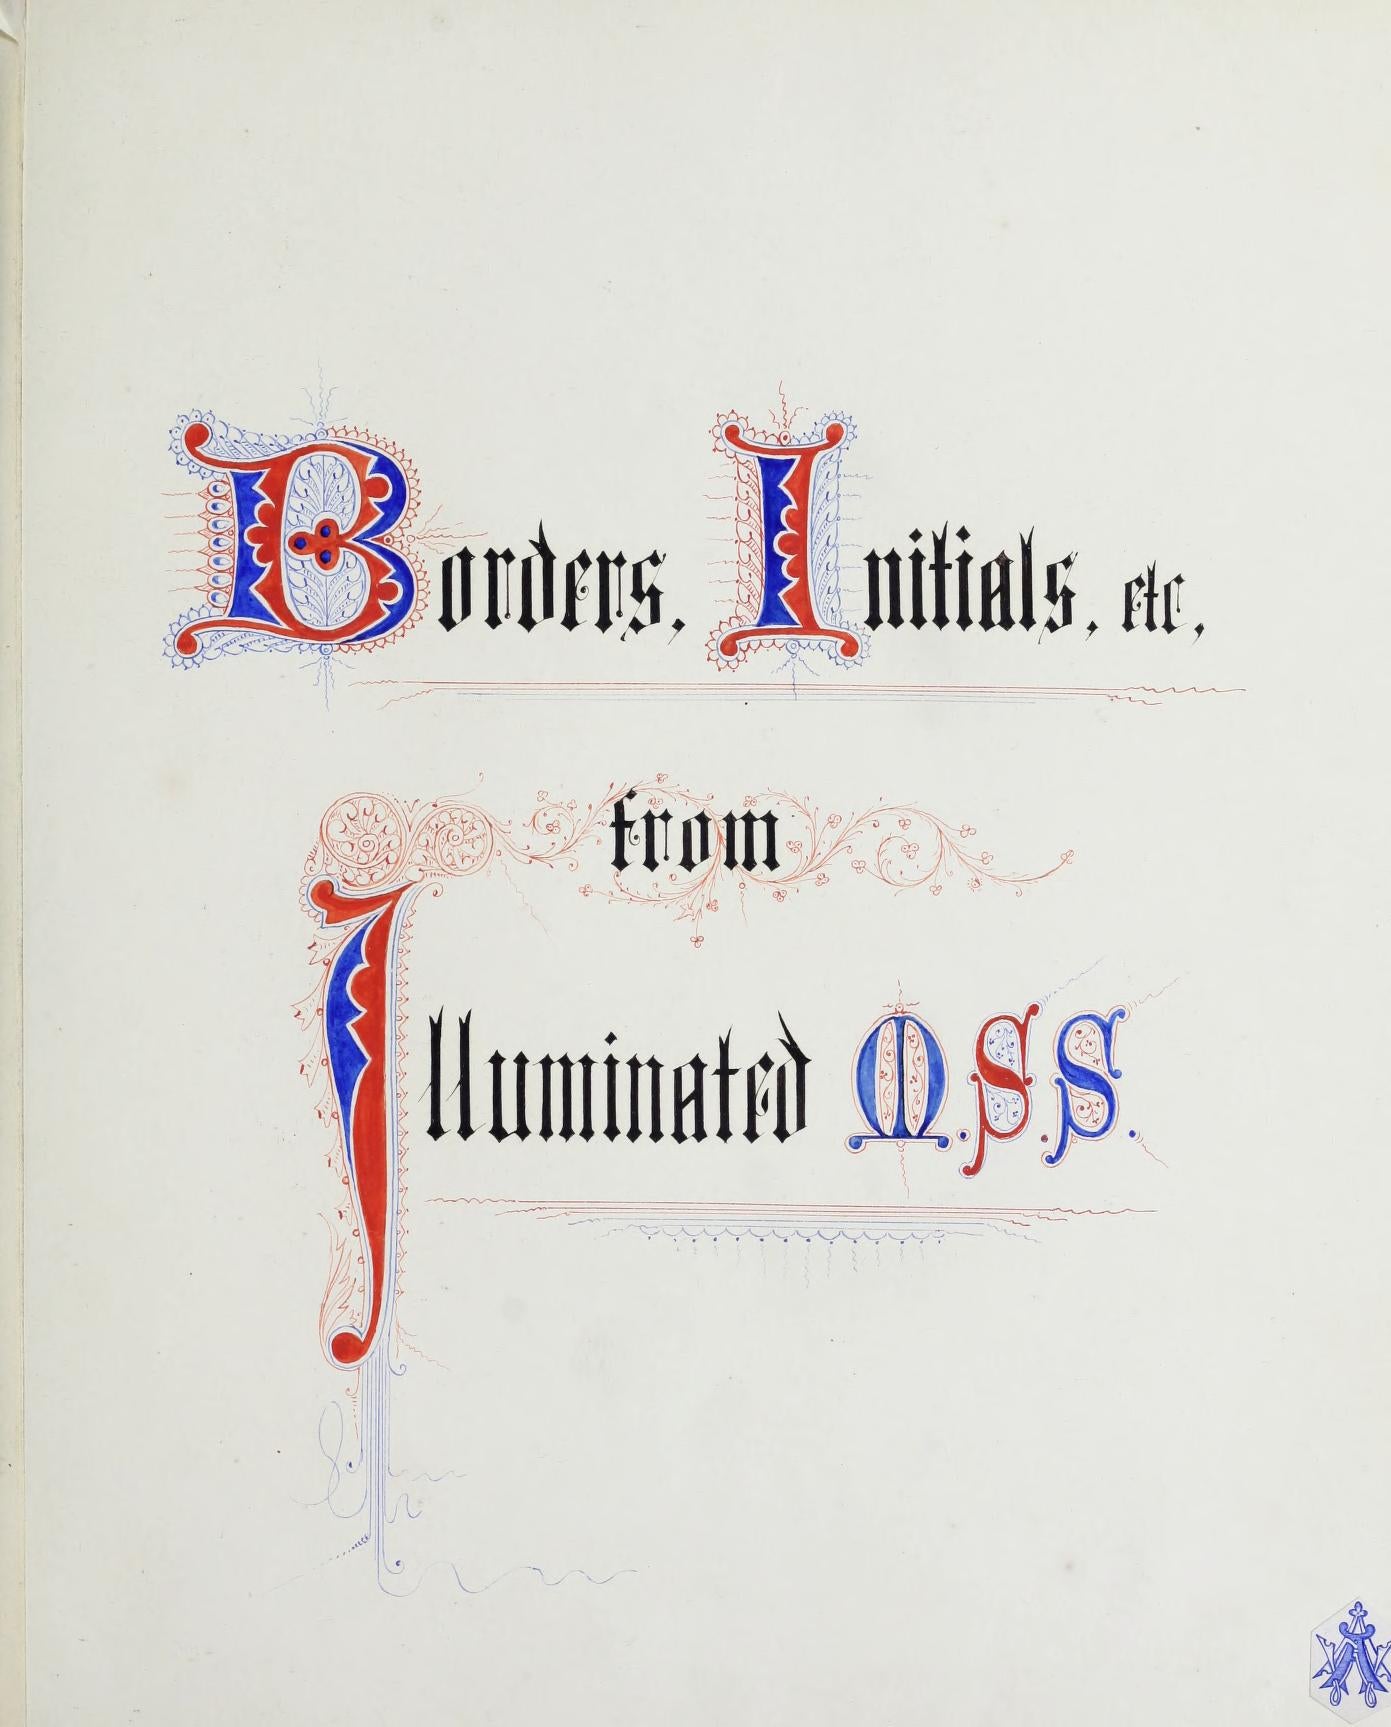 Borders, Initials, etc,
from
Illuminated M.S.S.